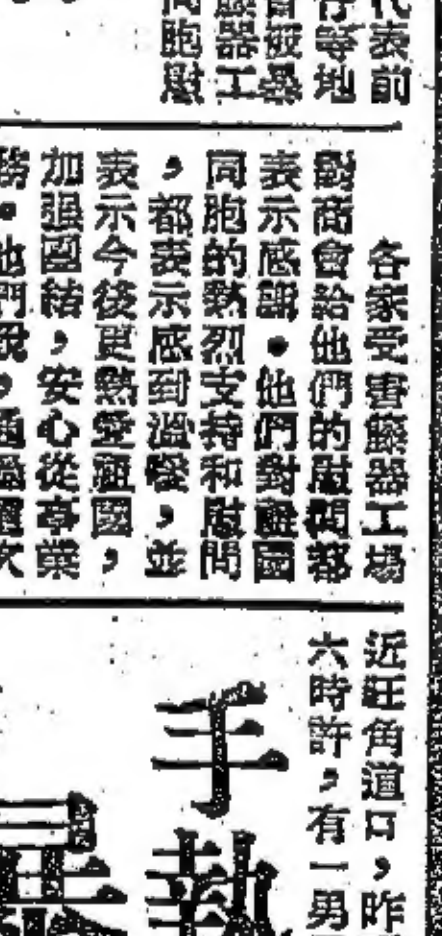 代表前
等地
器工
同胞慰
各家受害籐器工場
對商會給他們的慰問都
表示感謝。他們對祖國
同胞的熱烈支持和慰問
，都表示感到溫暖，並
表示今後更熱愛祖國，
加强團結，安心從事業
務。他們說，通過這次
近旺角道口，昨
六時許，有一男
手執